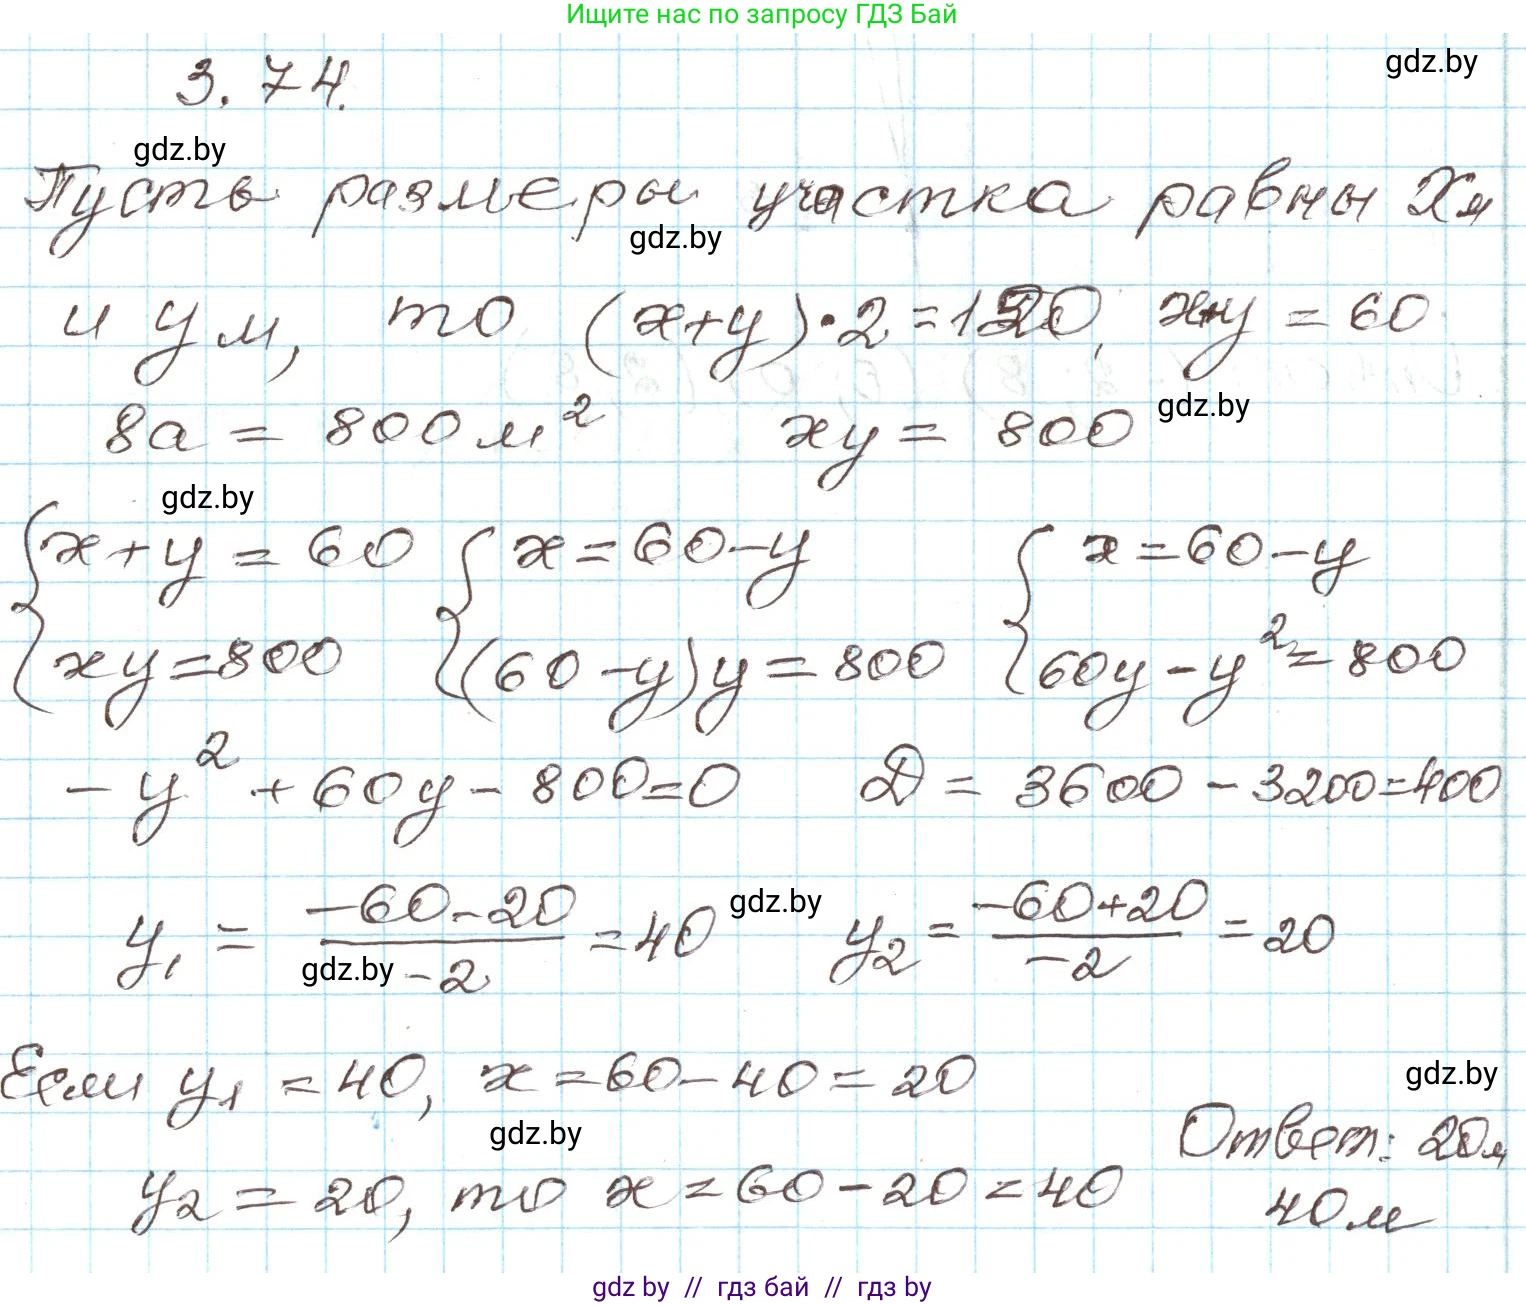 Ищите нас по запросу ГДЗ Бай
gdz.by
3.74.
gdz.by
Пусть размеры участка равны x м
gdz.by
и y м, то (x+y)·2=120, x+y=60
gdz.by
8а = 800 м² xy = 800
gdz.by
{x+y=60 {x=60-y {x=60-y
{xy=800 {(60-y)y=800 {60y-y²=800
-y²+60y-800=0 D = 3600-3200=400
y₁ = (-60-20)/(-2) = 40 gdz.by y₂ = (-60+20)/(-2) = 20
gdz.by
Если y₁=40, x=60-40=20
gdz.by
gdz.by
Ответ: 20м
y₂=20, то x=60-20=40
40м
gdz by // гдз бай // гдз by